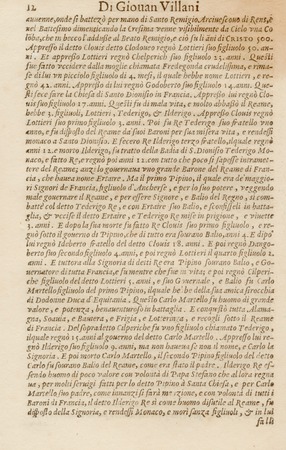 12 DI Giouan Villani
auuenne, onde si battezò per mano di Santo Remigio, Arciuescouo di Rens, e
nel Battesimo dimenticando la Cresima venne visibilmente da Cielo vna Co
lōba, che in becco l'addusse al Beato Remigio, e ciò fu li āni di CRISTO 500.
Appresso il detto Clouis detto Clodoueo regnò Lottieri suo figliuolo 50. an-
ni. Et appresso Lottieri regnò Chelperich suo figliuolo 23 anni. Questi
fue fatto vccidere dalla moglie chiamata Fredegonda crudelissima, e rima-
se di lui vn picciolo figliuolo di 4. mesi, il quale hebbe nome Lottieri, e re-
gnò 42. anni. Appresso di lui regnò Godoberto suo figliuolo 14 anni. Que-
sti fece fare la Chiesa di Santo Dionisio in Francia. Appresso regnò Clouis
suo figliuolo 17. anni. Questi fu di mala vita, e molto abbassò il Reame,
hebbe 3. figliuoli, Lottieri, Tederigo, & Ilderigo. Appresso Clouis regnò
Lottieri suo primo figliuolo 3. anni. Poi regnò Tederigo fratello suo vno
anno, e fu disposto del Reame da suoi Baroni per sua misera vita, e rendessi
monaco a Santo Dionisio. E fecero Re Ilderigo terzo fratello, ilquale regnò
anni 12. e morto Ilderigo, fu tratto della Badia di S. Dionisio Tederigo Mo-
naco, e fatto Re, e regnò poi anni 12. con tutto che poco si sapesse intramet-
tere del Reame; anzi lo gouernaua vno grande Barone del Reame di Fran-
cia, che haueua nome Ertaire. Ma il primo Pipino, il quale era de maggio-
ri Signori de Francia, figliuolo d'Ancherse, e per lo suo potere, veggendo
male gouernare il Reame, e per essere Signore, e Balio del Regno, si com-
battè col detto Tederigo Re, e con Ertaire suo Balio, e sconfisseli in batta-
glia, & vccise il detto Ertaire, e Tederigo Re mise in prigione, e viuette
3. anni. E dopo la sua morte fu fatto Re Clouis suo primo figliuolo, e re-
gnò sotto il gouerno di Pipino, che di tutto era sourano Balio, anni 4. E do
lui regnò Ildeberto fratello del detto Clouis 18. anni. E poi regnò Dango-
berto suo secondo figliuolo 4. anni, e poi regnò Lottieri il quarto figliuolo 2.
anni. E tuttora alla Signoria di detti Re era Pipino sourano Balio, e Go-
uernatore di tutta Francia, fu mentre che fue in vita; e poi regnò Cilperi-
che figliuolo del detto Lottieri 5. anni, e suo Gouernale, e Balio fu Carlo
Martello figliuolo del primo Pipino, il quale hebbe della sua amica sirocchia
di Dodonne Duca d'Equitania. Quello Carlo Martello fu huomo di grande
valore, e potenza, benauenturoso in battaglia. E conquistò tutta Allama-
gna, Soauia, e Bauera, e Frigia, e Lottrenia, e recogli sotto il Reame
di Francia. Del sopra detto Cilperiche fu vno figliuolo chiamato Tederigo,
il quale regnò 15. anni al gouerno del detto Carlo Martello. Appresso lui re-
gnò Ilderigo suo figliuolo 9. anni, ma non haueua se non il nome, e Carlo la
Signoria. E poi morto Carlo Martello, il secondo Pipino figliuolo del detto
Carlo fu sourano Balio del Reame, come era stato il padre. Ilderigo Re es-
sendo huomo di poco valore con volontà di Papa Stefano che allora regna
ua, per molti seruigi fatti per lo detto Pipino à Santa Chiesa, e per Carlo
Martello suo padre, come innanzi si farà mēzione, e con volontà di tutti i
Baroni di Francia, il detto Ilderigo Re sì come huomo disutile al Reame, fu
disposto della Signoria, e rendessi Monaco, e morì sanza figliuoli, & in lui
falli